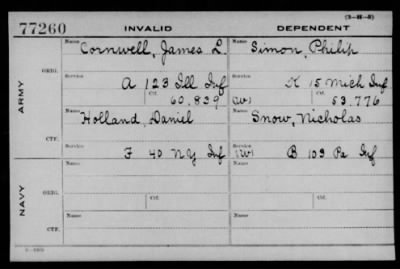 (3-H-8)
77260 INVALID DEPENDENT
Name Cornwell, James L. Name Simon, Philip
ORIG.
Service A 123 Ill Inf Service K 15 Mich Inf
Ctf. 60.839 (W) Ctf. 53.776
ARMY
Name Holland, Daniel Name Snow, Nicholas
CTF.
Service F 40 N.Y. Inf Service (W) B 103 Pa Inf
Name Name
ORIG.
Service Service
Ctf. Ctf.
NAVY
Name Name
CTF.
Service Service